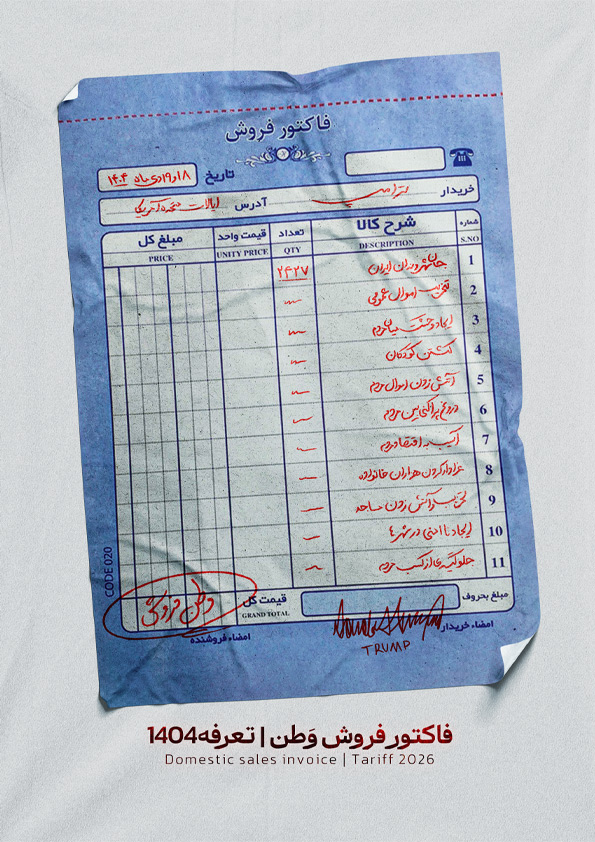 فاکتور فروش
تاریخ ۱۸ و ۱۹ دی ماه ۱۴۰۴
خریدار ترامپ آدرس ایالات متحده آمریکا
شماره شرح کالا تعداد قیمت واحد مبلغ کل
S.NO DESCRIPTION QTY UNITY PRICE PRICE
1 جان شهروندان ایران ۲۴۲۷
2 تخریب اموال عمومی
3 ایجاد وحشت میان مردم
4 کشتن کودکان
5 آتش زدن اموال مردم
6 دروغ پراکنی بین مردم
7 آسیب به اقتصاد مردم
8 عزادار کردن هزاران خانواده
9 تخریب و آتش زدن مساجد
10 ایجاد ناامنی در شهر
11 جلوگیری از کسب مردم
مبلغ بحروف قیمت کل وطن فروشی
GRAND TOTAL
امضاء خریدار امضاء فروشنده
TRUMP
CODE 020
فاکتور فروش وَطن | تعرفه 1404
Domestic sales invoice | Tariff 2026